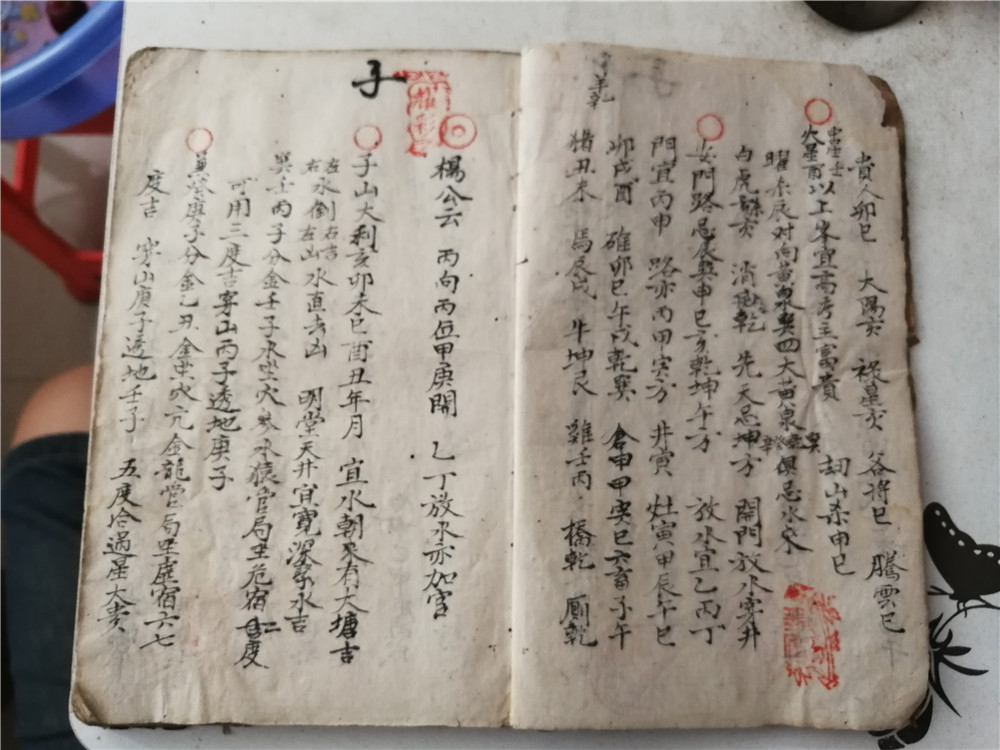 貴人卯巳 大陽亥 祿星亥 谷將巳 騰雲巳
火星酉以上峯宜高考主富貴 劫山杀申巳
曜杀辰对丙黃泉巽四大黃泉俱忌水来
白虎 亥 消 乾 先天忌坤方 開門放水穿井
女門路忌辰巽申巳亥乾坤午方 放水宜乙丙丁
門宜丙申 路亦丙甲寅方 井寅 灶寅甲辰午巳
卯戌酉 碓卯巳午戌乾巽 倉申甲寅巳六畜子午
猪丑未 馬辰戌 牛坤艮 雞壬丙 橋乾 厠乾
羊乾
子
楊公云 丙向丙位甲庚開 乙丁放水亦加官
子山大利亥卯未巳酉丑年月 宜水朝來有大塘吉
左水倒右吉
右水倒左山水直去凶 明堂天井宜寬深 水吉
巽士丙子分金壬子水坐穴 水猿官局坐危宿 度
可用三度吉穿山丙子透地庚子
庚子分金乙丑金坐穴亢金龍官局坐虛宿六七
度吉 穿山庚子透地壬子 五度合過星大贵